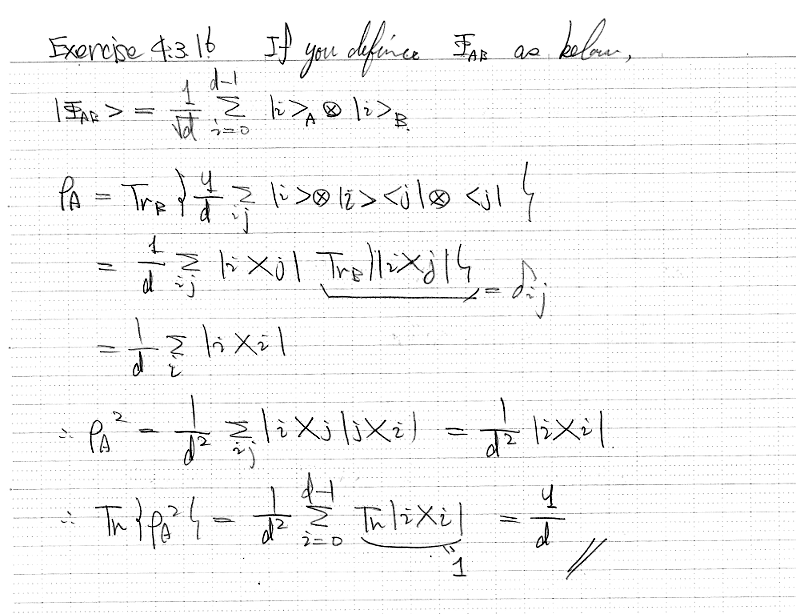 Exercise 4.3.16 If you define Φ_AB as below,
|Φ_AB> = 1/√d Σ_{i=0}^{d-1} |i>_A ⊗ |i>_B
ρ_A = Tr_B { 1/d Σ_{ij} |i>⊗|i><j|⊗<j| }
= 1/d Σ_{ij} |i><j| Tr_B{|i><j|} = δ_ij
= 1/d Σ_i |i><i|
∴ ρ_A² = 1/d² Σ_{ij} |i><j|j><i| = 1/d² |i><i|
∴ Tr{ρ_A²} = 1/d² Σ_{i=0}^{d-1} Tr|i><i| = 1/d //
"1